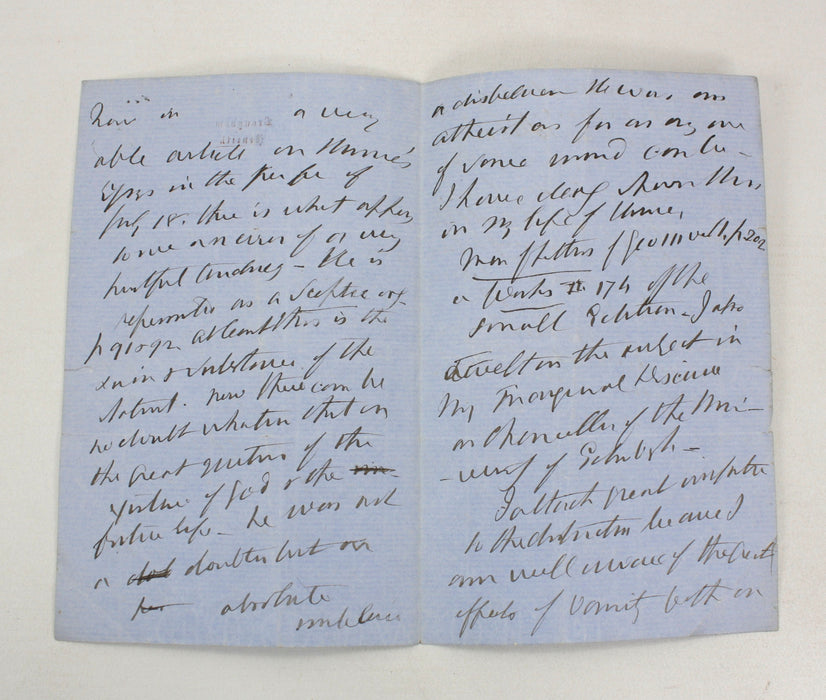 in a very
able article on Hume's
Essays in the of
July 18. there is what appears
to me an error of a very
hurtful tendency - He is
represented as a Sceptic only
p 91 & 92 at least this is the
& substance of the
Now there can be
no doubt whatever that on
the great question of the
of God & the
future life - he was not
a doubter but an
absolute
unbeliever
a disbeliever He was an
atheist as far as any one
of sound mind can be -
I have clearly shown this
in my life of Hume,
Men of Letters of Geo III vol. p 202
a Works II 174 of the
small Edition - I also
dwelt on the subject in
My Inaugural Discourse
as Chancellor of the Uni-
-versity of Edinburgh -
I attach great importance
to the distinction because I
am well aware of the great
effects of vanity both on